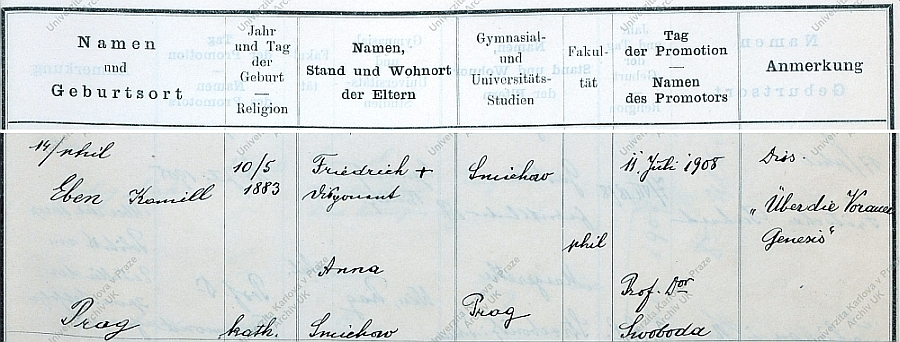 Namen
und
Geburtsort
Jahr
und Tag
der
Geburt
—
Religion
Namen,
Stand und Wohnort
der Eltern
Gymnasial-
und
Universitäts-
Studien
Fakul-
tät
Tag
der Promotion
—
Namen
des Promotors
Anmerkung
14/phil
Eben Kamill
Prag
10/5
1883
kath.
Friedrich +
Disponent
Anna
Smichow
Smichow
Prag
phil
11. Juli 1908
Prof. Dor
Swoboda
Dis.
„Über die Vorauer
Genesis“
Univerzita Karlova v Praze
Archiv UK